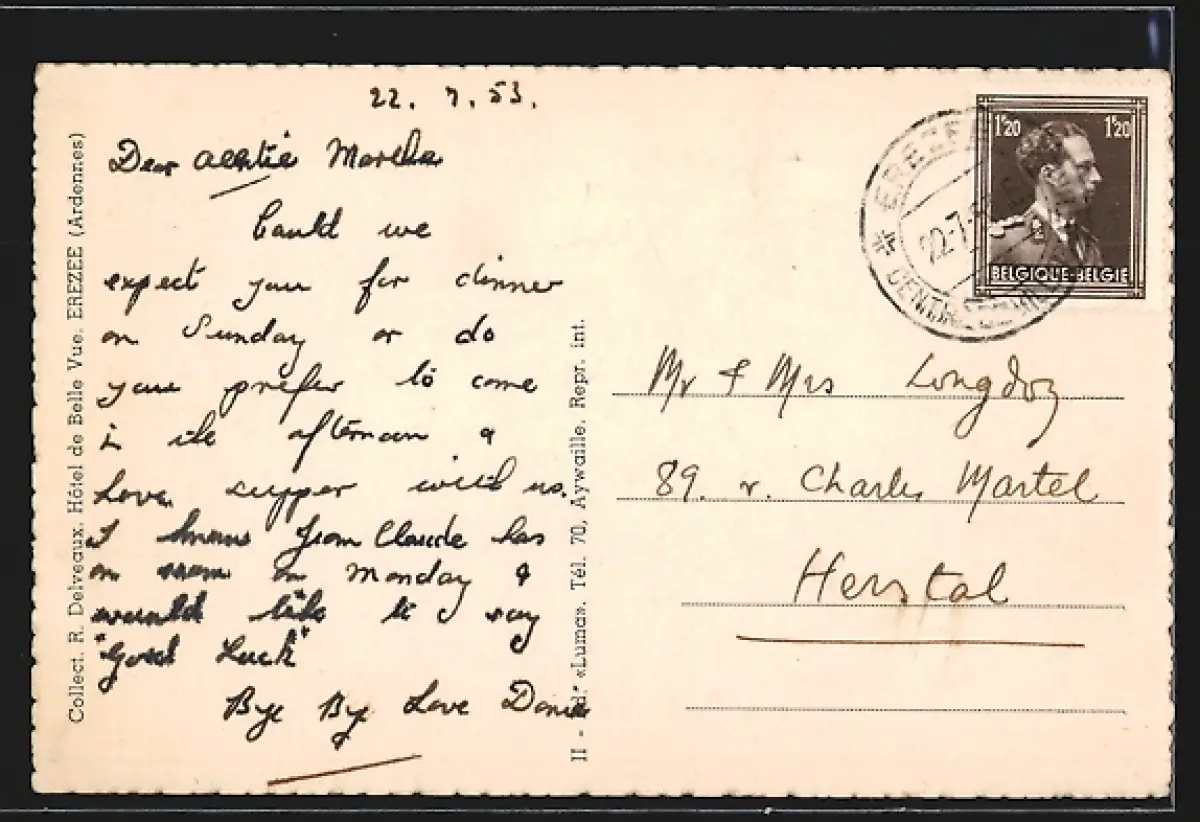 22. 7. 53.
Dear Auntie Martha
Could we
expect you for dinner
on Sunday or do
you prefer to come
in the afternoon &
have supper with us.
I know Jean Claude has
an exam on Monday &
would like to say
"Good Luck"
Bye Bye Love
Mr & Mrs Longdoz
89. r. Charles Martel
Herstal
1F20 1F20
BELGIQUE-BELGIE
EREZEE
22-7-5
Collect. R. Delveaux. Hôtel de Belle Vue. EREZEE (Ardennes)
«Luma». Tél. 70, Aywaille. Repr. int.